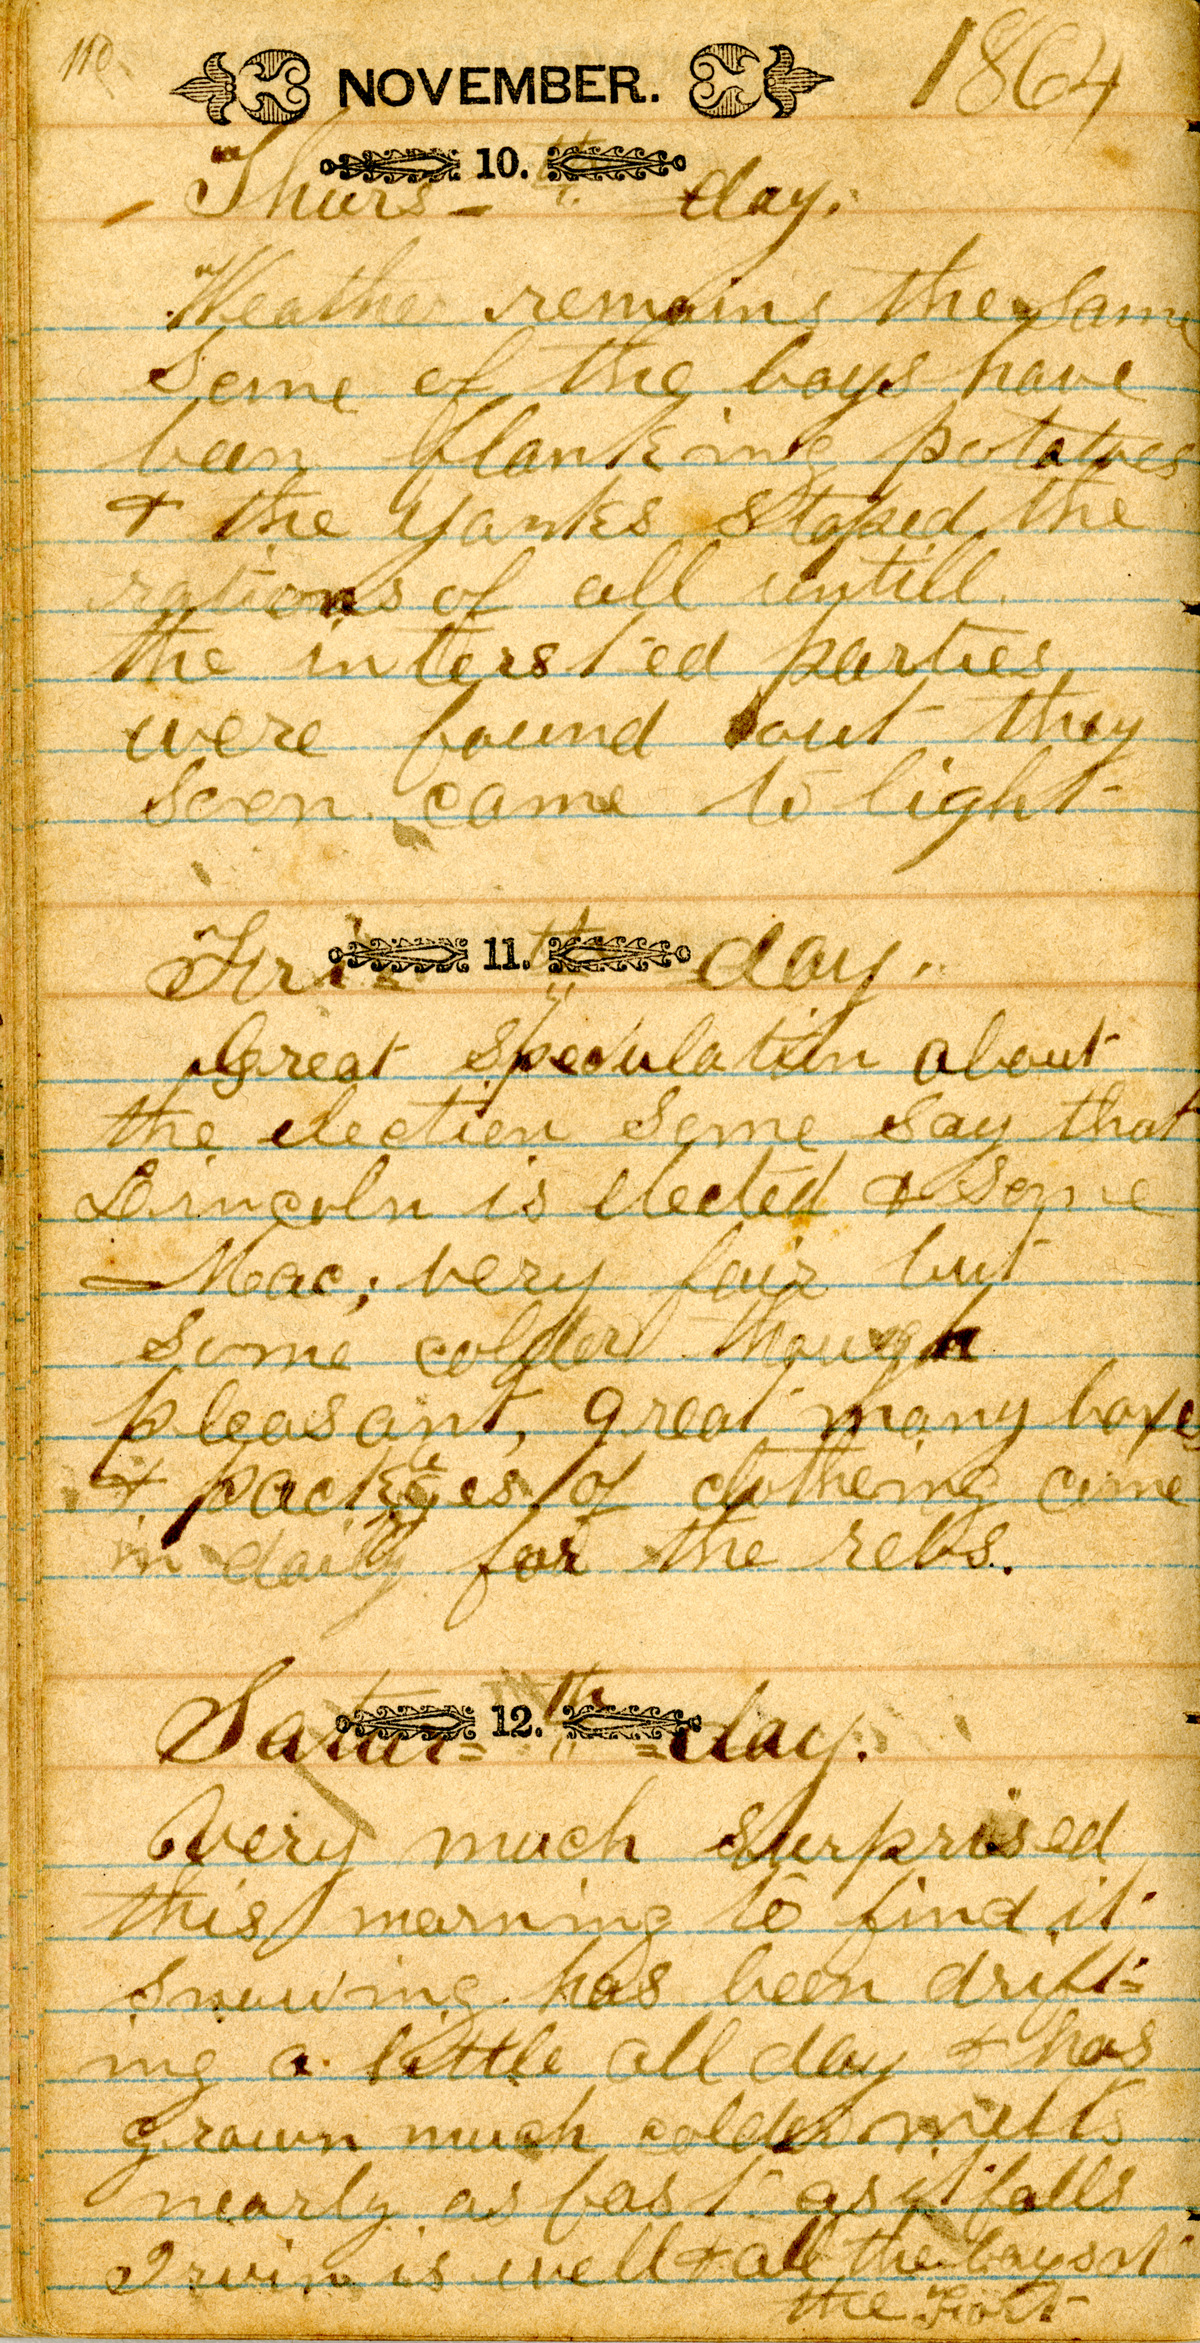 110
NOVEMBER. 1864
Thurs- 10. th day.
Weather remains the same
Some of the boys have
been flanking potatoes
& the Yanks stoped the
rations of all untill
the intersted parties
were found out they
soon came to light
Fri= 11. th day.
Great speculation about
the election some say that
Lincoln is elected & some
Mac; very fair but
some colder though
pleasant, great many boxes
& packages of clotheing come
in daily for the rebs.
Satur= 12. th =day.
Very much surprised
this morning to find it
snowing has been drift=
ing a little all day & has
grown much colder melts
nearly as fast as it falls
Irvin is well & all the boys at
the Fort